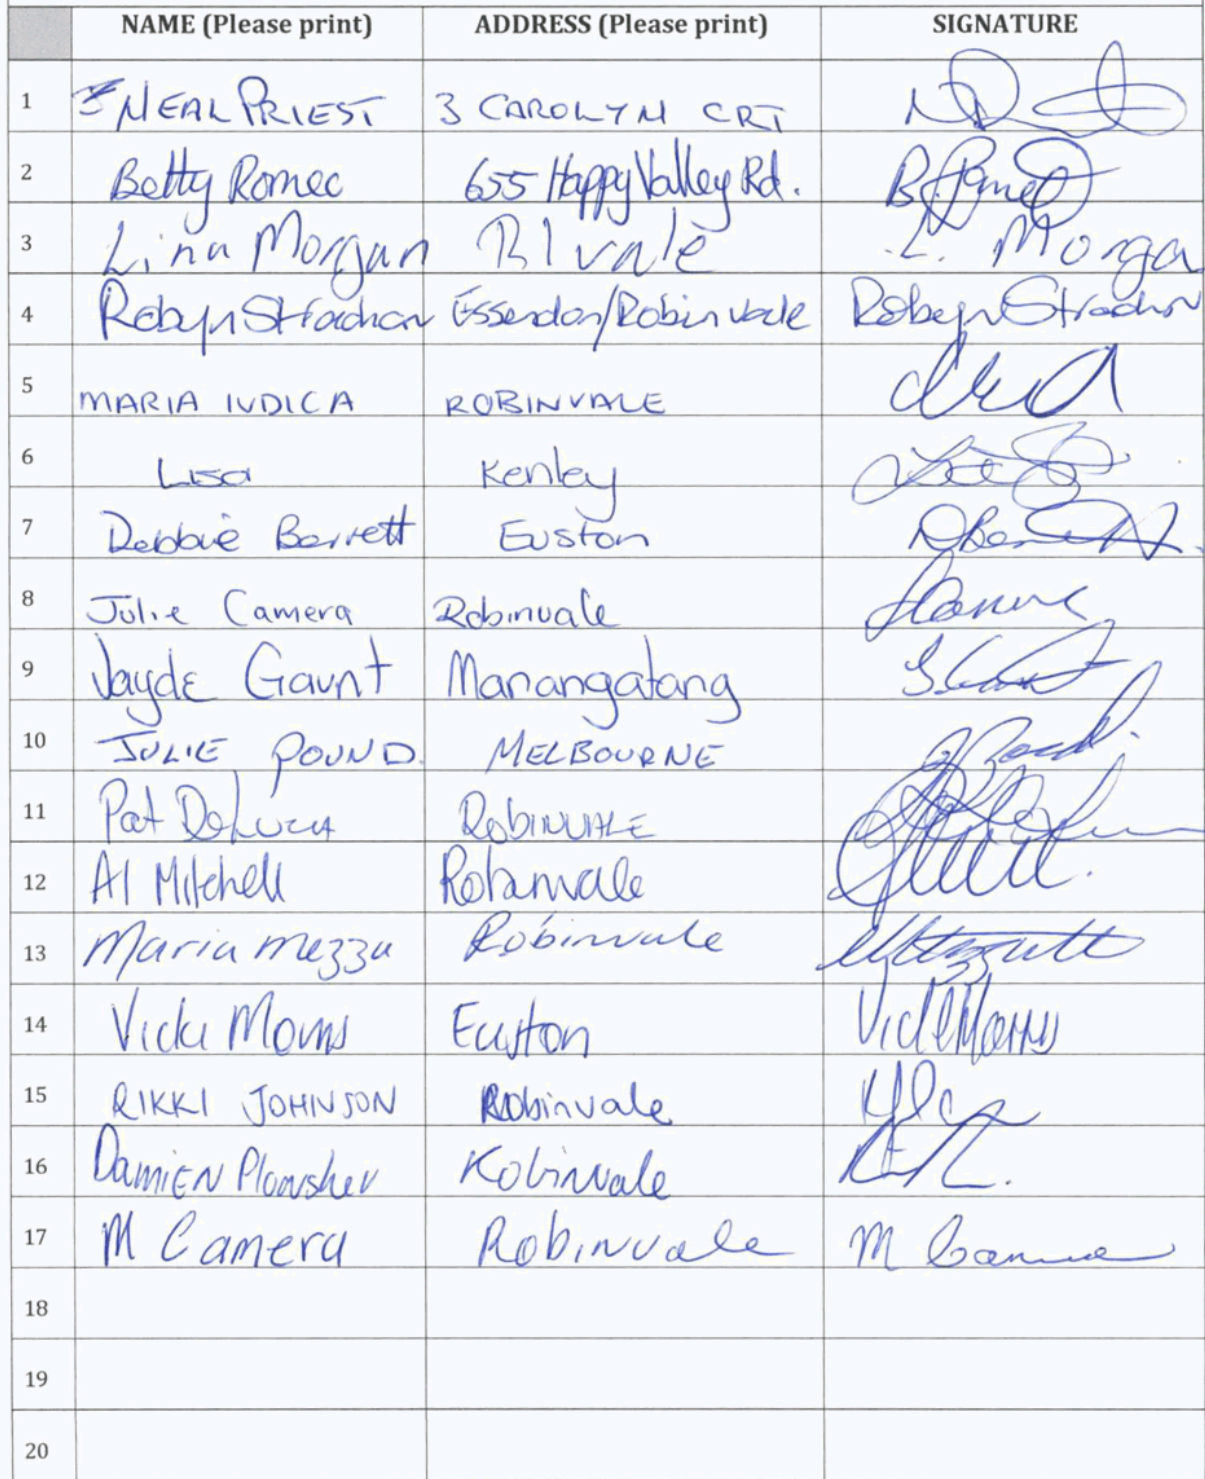 NAME (Please print) ADDRESS (Please print) SIGNATURE
1 NEAL PRIEST 3 CAROLYN CRT
2 Betty Romeo 655 Happy Valley Rd.
3 Lina Morgan R/vale L. Morga
4 Robyn Strachan Essendon/Robinvale Robyn Strachan
5 MARIA IUDICA ROBINVALE
6 Lisa Kenley
7 Debbie Barrett Euston
8 Julie Camera Robinvale
9 Jayde Gaunt Manangatang
10 JULIE POUND. MELBOURNE
11 Pat DeLuca ROBINVALE
12 Al Mitchell Robinvale
13 Maria Mezza Robinvale
14 Vicki Morris Euston Vicki Morris
15 RIKKI JOHNSON Robinvale
16 Damien Robinvale
17 M Camera Robinvale M Camera
18
19
20